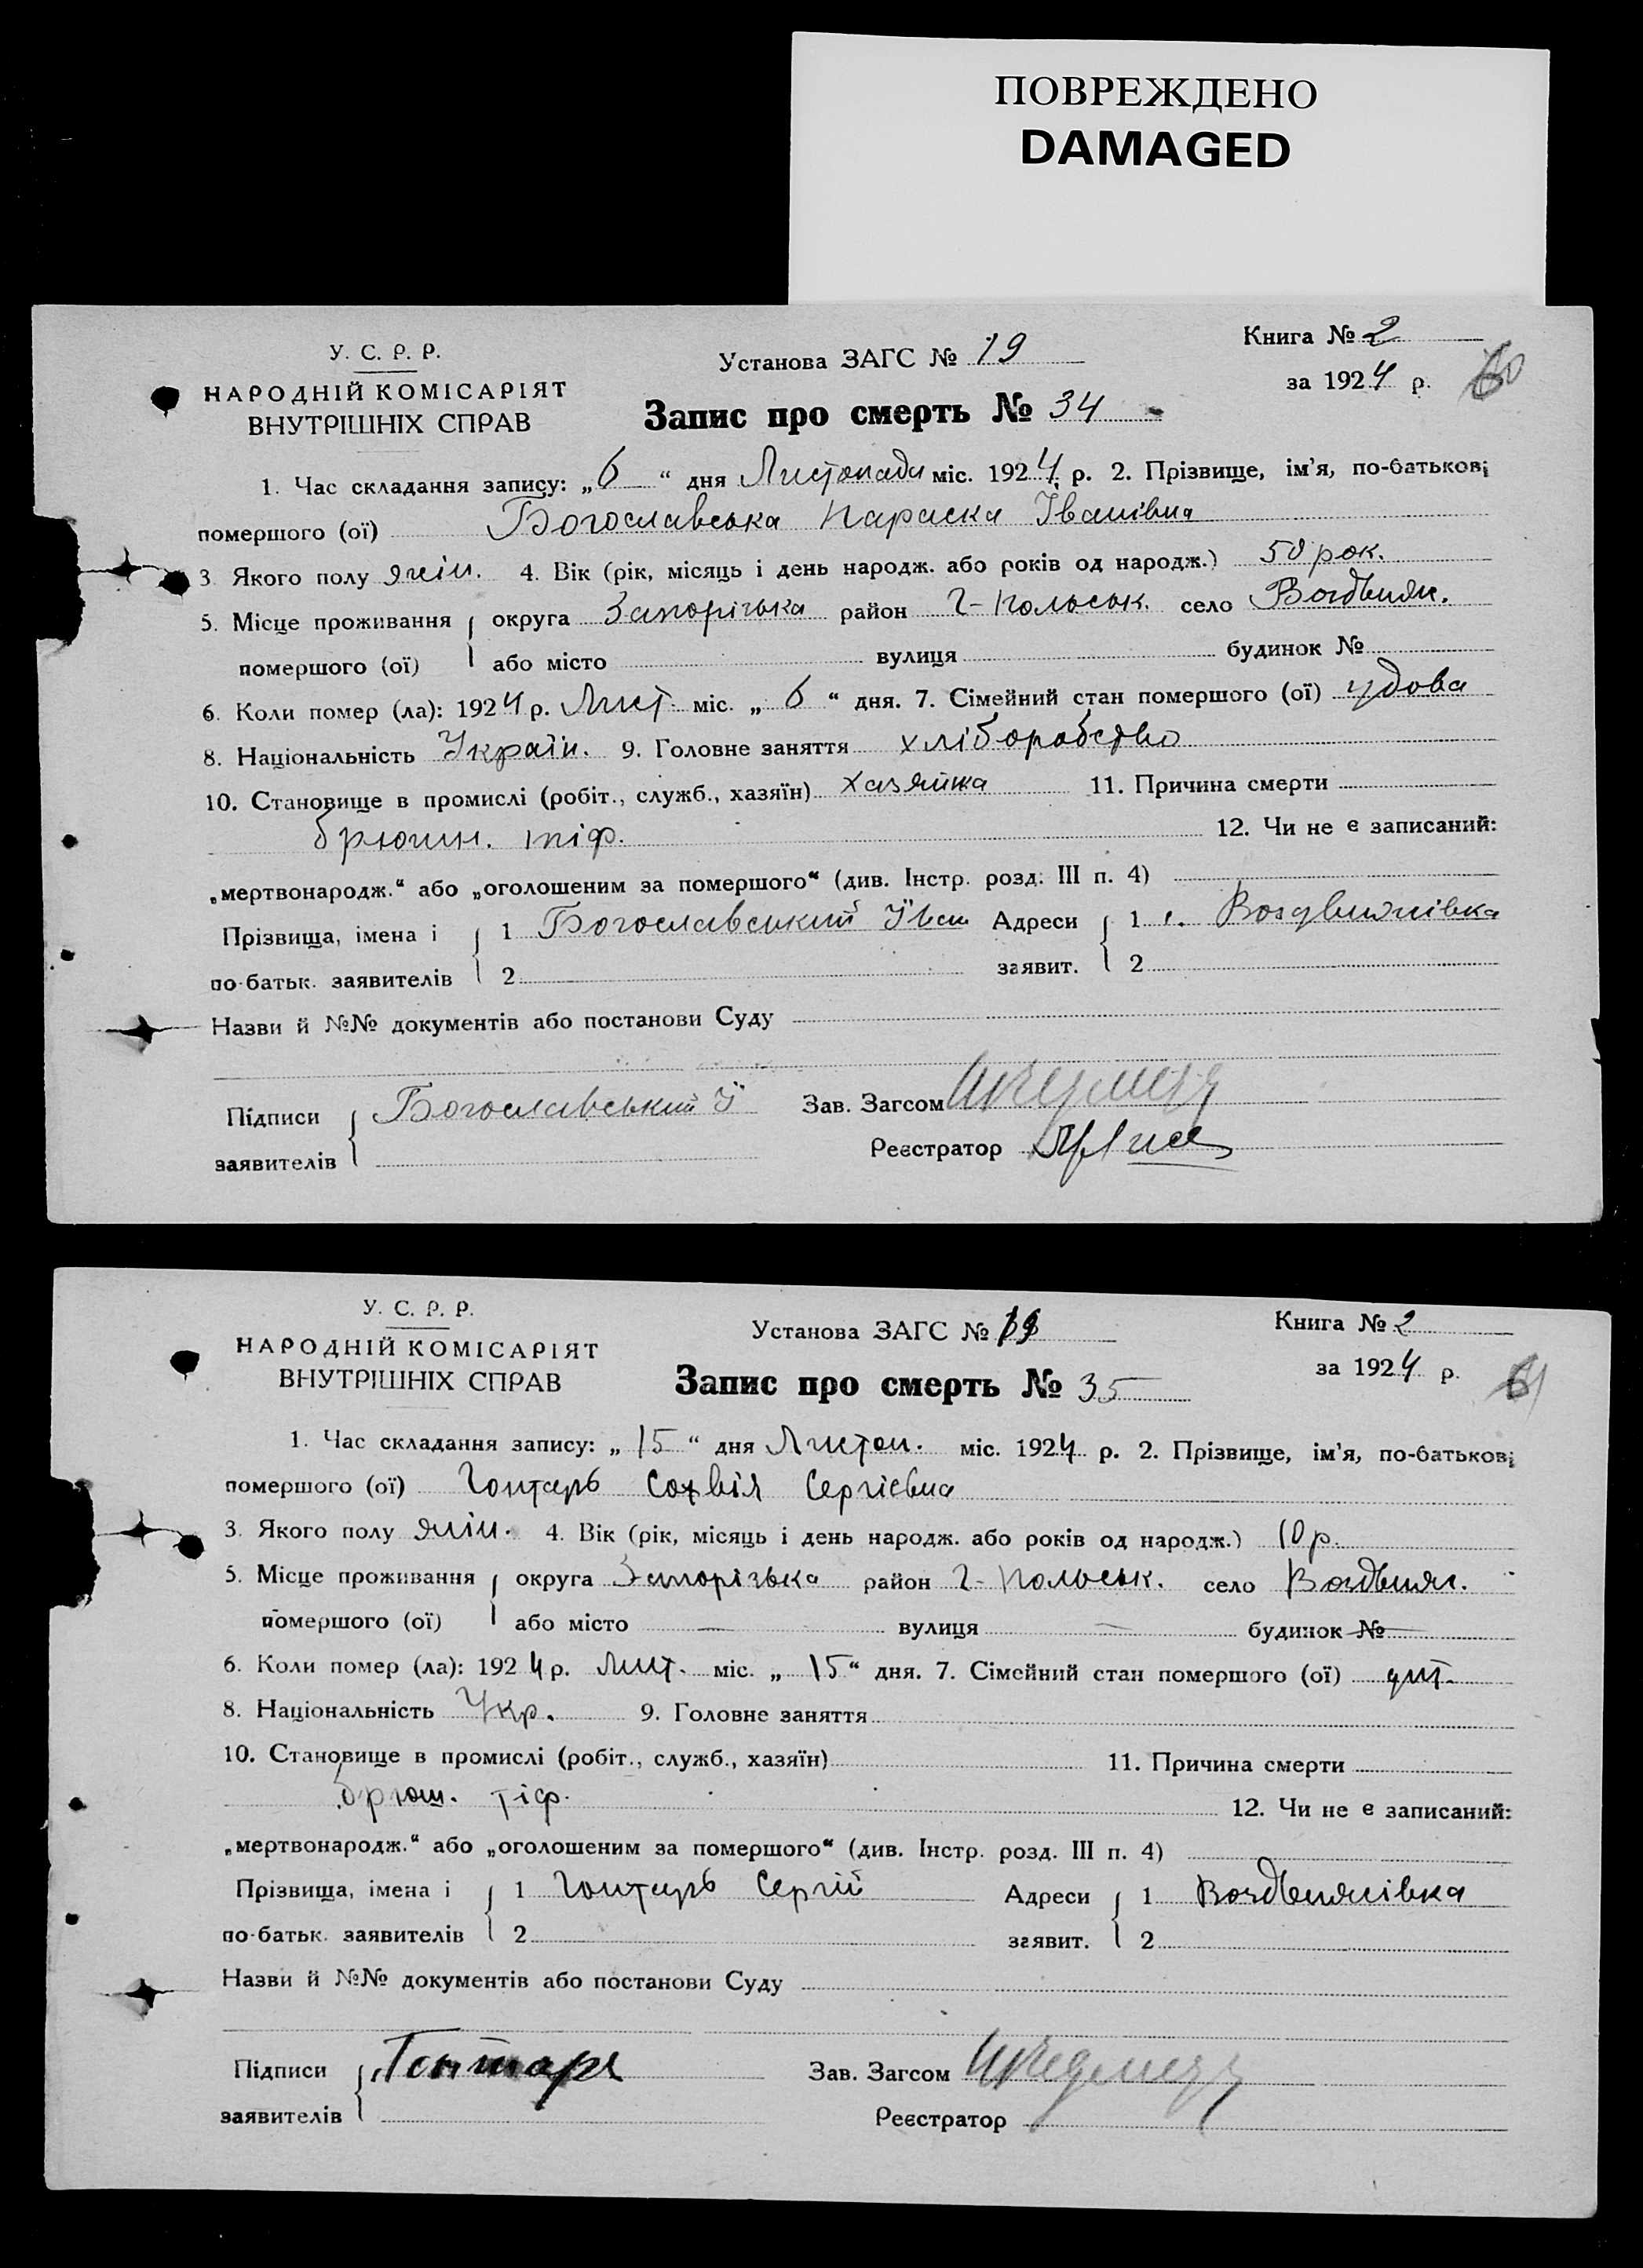 ПОВРЕЖДЕНО
DAMAGED
У. С. Р. Р.
НАРОДНІЙ КОМІСАРІЯТ
ВНУТРІШНІХ СПРАВ
Установа ЗАГС № 19
Книга № 2
за 1924 р.
Запис про смерть № 34
1. Час складання запису: „6“ дня Листопада міс. 1924 р. 2. Прізвище, ім’я, по-батькові
помершого (ої) Богославська Параска Іванівна
3. Якого полу жін. 4. Вік (рік, місяць і день народж. або років од народж.) 50 рок.
5. Місце проживання округа Запорізька район Г-Польськ. село Воздвиж.
помершого (ої) або місто вулиця будинок №
6. Коли помер (ла): 1924 р. Лист. міс. „6“ дня. 7. Сімейний стан помершого (ої) удова
8. Національність Україн. 9. Головне заняття хліборобство
10. Становище в промислі (робіт., служб., хазяїн) хазяйка 11. Причина смерти
брюшн. тіф. 12. Чи не є записаний:
„мертвонародж.“ або „оголошеним за помершого“ (див. Інстр. розд. III п. 4)
Прізвища, імена і 1 Богославський Іван Адреси 1 с. Воздвижівка
по-батьк. заявителів 2 заявит. 2
Назви й №№ документів або постанови Суду
Підписи Богославський І Зав. Загсом
заявителів Реєстратор
У. С. Р. Р.
НАРОДНІЙ КОМІСАРІЯТ
ВНУТРІШНІХ СПРАВ
Установа ЗАГС № 19
Книга № 2
за 1924 р. 61
Запис про смерть № 35
1. Час складання запису: „15“ дня Листоп. міс. 1924 р. 2. Прізвище, ім’я, по-батькові
помершого (ої) Гонтарь Софвія Сергієвна
3. Якого полу жін. 4. Вік (рік, місяць і день народж. або років од народж.) 10 р.
5. Місце проживання округа Запорізька район Г-Польськ. село Воздвиж.
помершого (ої) або місто — вулиця — будинок №
6. Коли помер (ла): 1924 р. Лист. міс. „15“ дня. 7. Сімейний стан помершого (ої) дит.
8. Національність Укр. 9. Головне заняття
10. Становище в промислі (робіт., служб., хазяїн) 11. Причина смерти
брюш. тіф. 12. Чи не є записаний:
„мертвонародж.“ або „оголошеним за помершого“ (див. Інстр. розд. III п. 4)
Прізвища, імена і 1 Гонтарь Сергій Адреси 1 Воздвижівка
по-батьк. заявителів 2 заявит. 2
Назви й №№ документів або постанови Суду
Підписи Гонтарь Зав. Загсом
заявителів Реєстратор